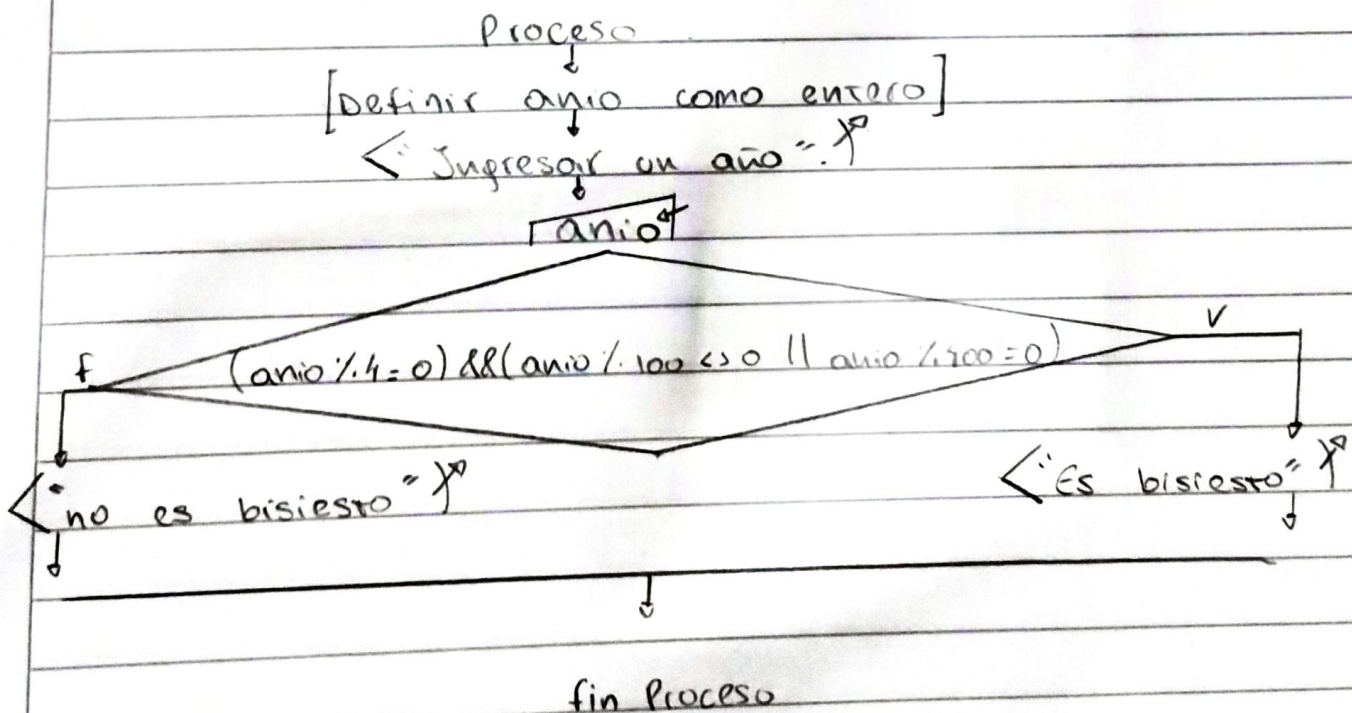 Proceso
[Definir anio como entero]
"Ingresar un año".
anio
f
(anio % 4 = 0) && (anio % 100 <> 0 || anio % 400 = 0)
V
"no es bisiesto"
"Es bisiesto"
fin Proceso